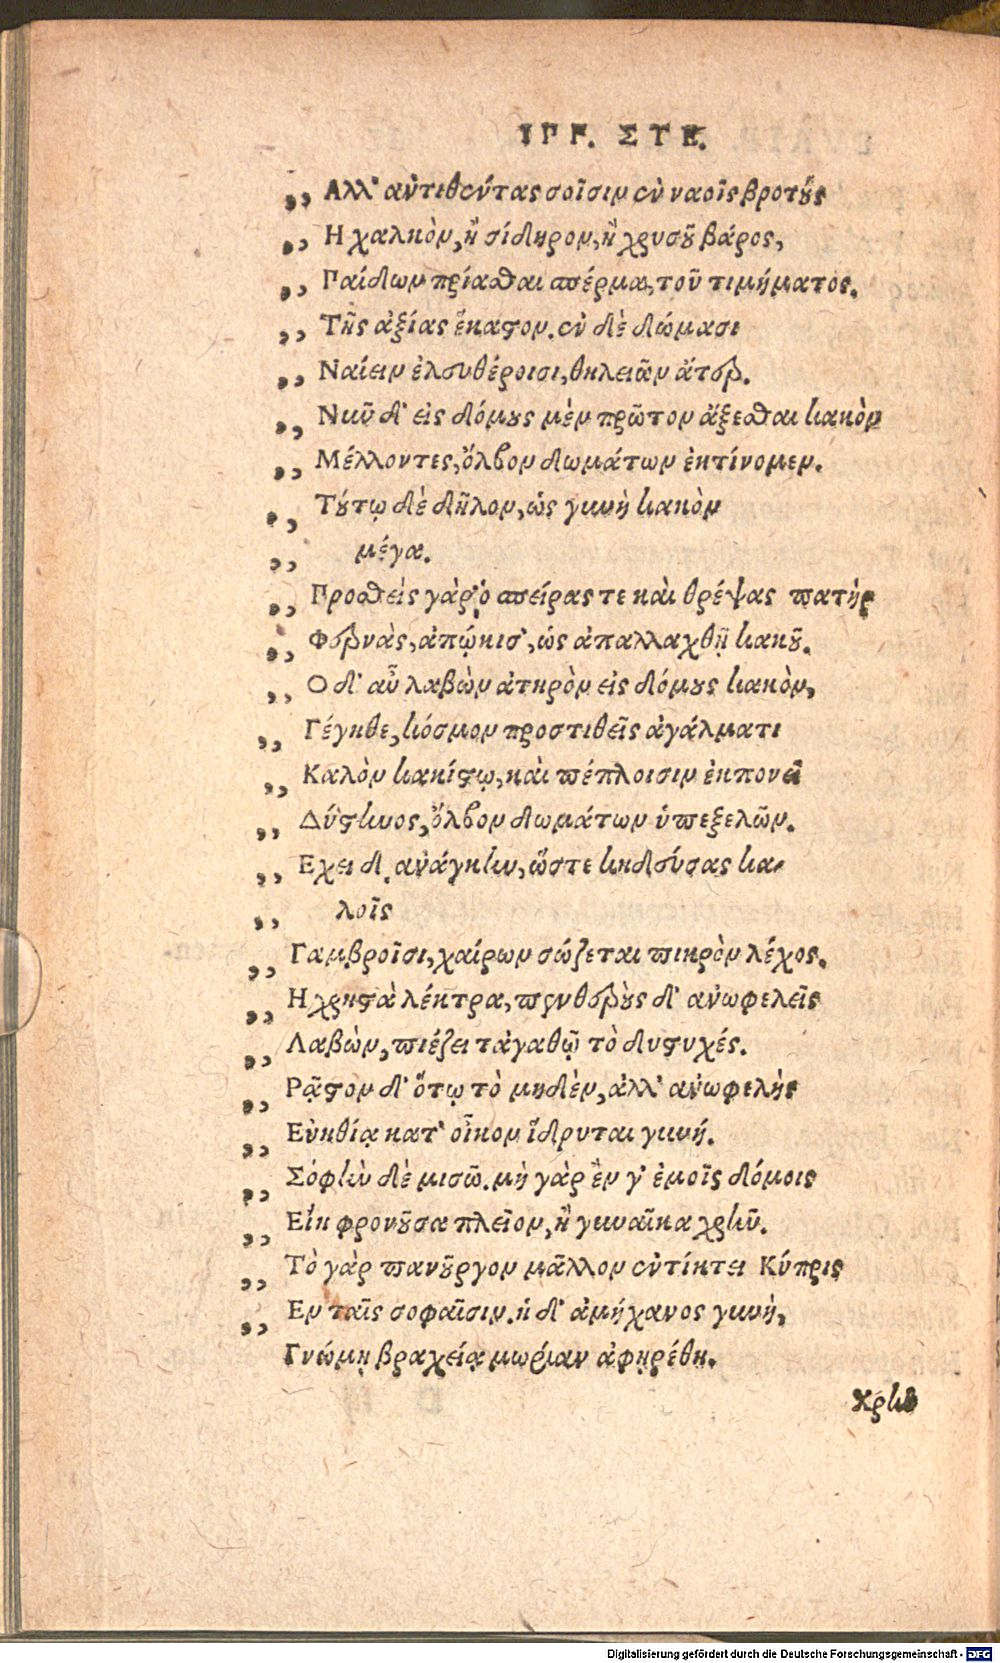 ΙΠΠ. ΣΤΕ.
,, Αλλ' αὐτιθέντας σοῖσιν ἐν ναοῖς βροτοὺς
,, Η χαλκὸν, ἢ σίδηρον, ἢ χρυσοῦ βάρος,
,, Παίδων πρίασθαι σπέρμα, τοῦ τιμήματος.
,, Τῆς ἀξίας ἕκαστον. ἐν δὲ δώμασι
,, Ναίειν ἐλευθέροισι, θηλειῶν ἄτερ.
,, Νῦν δ' εἰς δόμους μὲν πρῶτον ἄξεσθαι κακὸν
,, Μέλλοντες, ὄλβον δωμάτων ἐκτίνομεν.
,, Τούτῳ δὲ δῆλον, ὡς γυνὴ κακὸν
,, μέγα.
,, Προσθεὶς γὰρ ὁ σπείρας τε καὶ θρέψας πατὴρ
,, Φερνὰς, ἀπῴκισ', ὡς ἀπαλλαχθῇ κακοῦ.
,, Ο δ' αὖ λαβὼν ἀτηρὸν εἰς δόμους κακὸν,
,, Γέγηθε, κόσμον προστιθεῖς ἀγάλματι
,, Καλὸν κακίστῳ, καὶ πέπλοισιν ἐκπονεῖ
,, Δύστηνος, ὄλβον δωμάτων ὑπεξελῶν.
,, Εχει δ' ανάγκην, ὥστε κηδεύσας κα-
,, λοῖς
,, Γαμβροῖσι, χαίρων σώζεται πικρὸν λέχος.
,, Η χρηστὰ λέκτρα, πενθεροὺς δ' ανωφελεῖς
,, Λαβὼν, πιέζει τἀγαθῷ τὸ δυστυχές.
,, Ρᾷστον δ' ὅτῳ τὸ μηδὲν, ἀλλ' ανωφελὴς
,, Εὐηθίᾳ κατ' οἶκον ἵδρυται γυνή.
,, Σόφὴν δὲ μισῶ. μὴ γὰρ ἔν γ' ἐμοῖς δόμοις
,, Εἴη φρονοῦσα πλεῖον, ἢ γυναῖκα χρῆν.
,, Τὸ γὰρ πανοῦργον μᾶλλον ἐντίκτει Κύπρις
,, Εν ταῖς σοφαῖσιν. ἡ δ' ἀμήχανος γυνὴ,
Γνώμῃ βραχείᾳ μωρίαν ἀφῃρέθη.
χρῆν
Digitalisierung gefördert durch die Deutsche Forschungsgemeinschaft - DFG